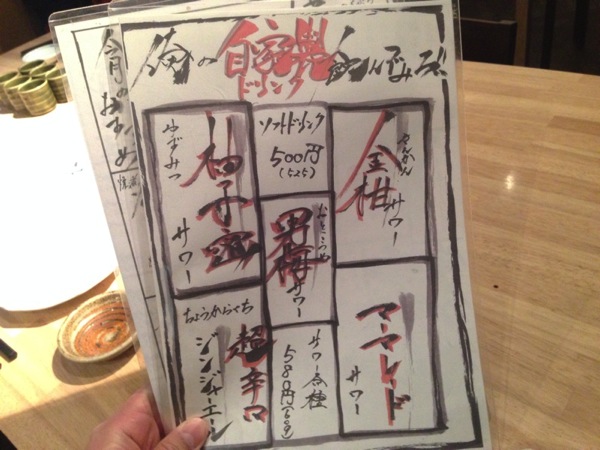 俺の自家製ドリンク飲んでみろ!
きんかん
金柑
サワー
マーマレード
サワー
ソフトドリンク
500円
(525)
おとこうめ
男梅
サワー
サワー各種
580円(609)
ゆずみつ
柚子蜜
サワー
ちょうからくち
超辛口
ジンジャーエール
今月のおすすめ